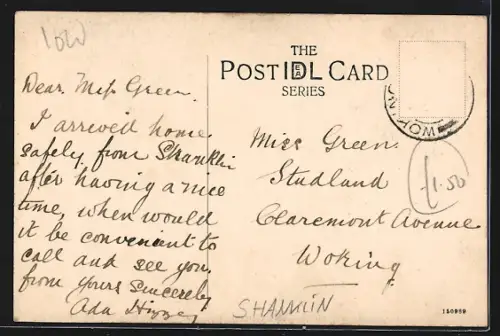 IOW
THE
POST IDEAL CARD
SERIES
WOKING
Dear Miss Green.
I arrived home
safely from Shanklin
after having a nice
time, when would
it be convenient to
call and see you.
from Yours sincerely
Ada
Miss Green.
Studland
Claremont Avenue
Woking
£1.50
SHANKLIN
150959